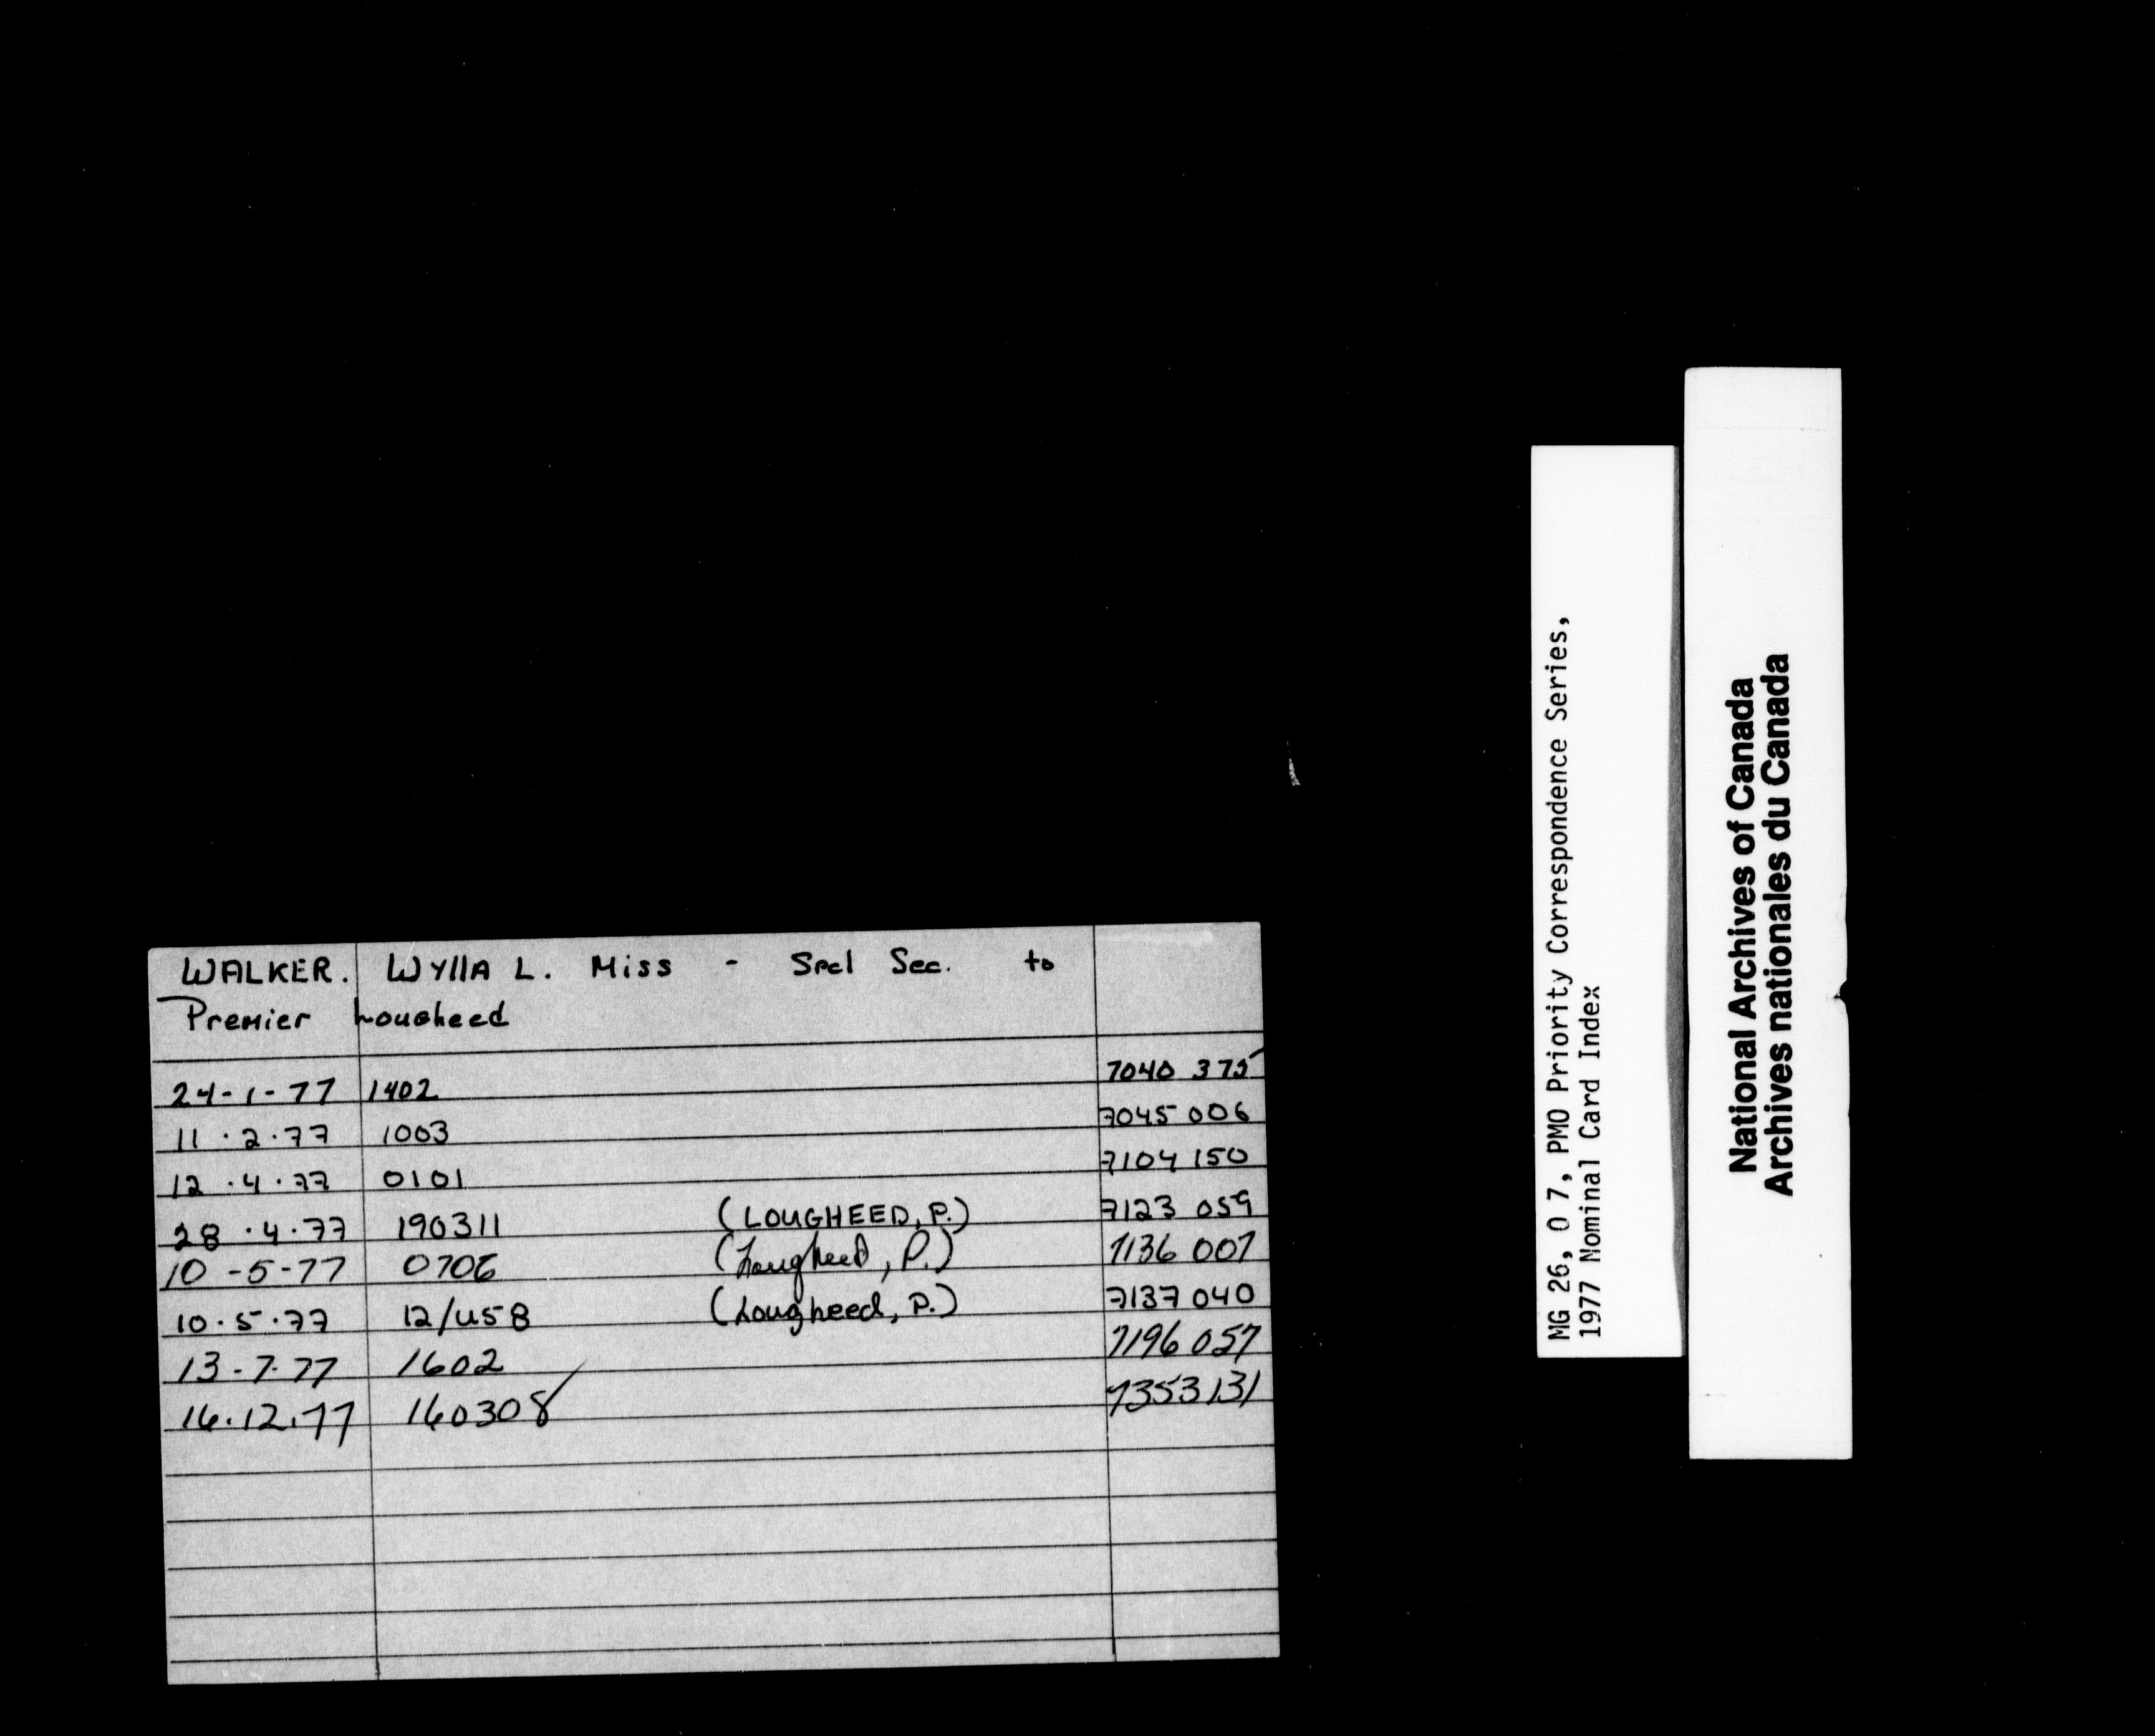 WALKER. WYllA L. Miss - Spcl Sec. to
Premier Lougheed
24-1-77 1402 7040 375
11.2.77 1003 7045 006
12.4.77 0101 7104 150
28.4.77 190311 (LOUGHEED, P.) 7123 059
10-5-77 0706 (Lougheed, P.) 7136 007
10.5.77 12/U58 (Lougheed, P.) 7137 040
13-7-77 1602 7196 057
16.12.77 160308 7353131
MG 26, O 7, PMO Priority Correspondence Series,
1977 Nominal Card Index
National Archives of Canada
Archives nationales du Canada